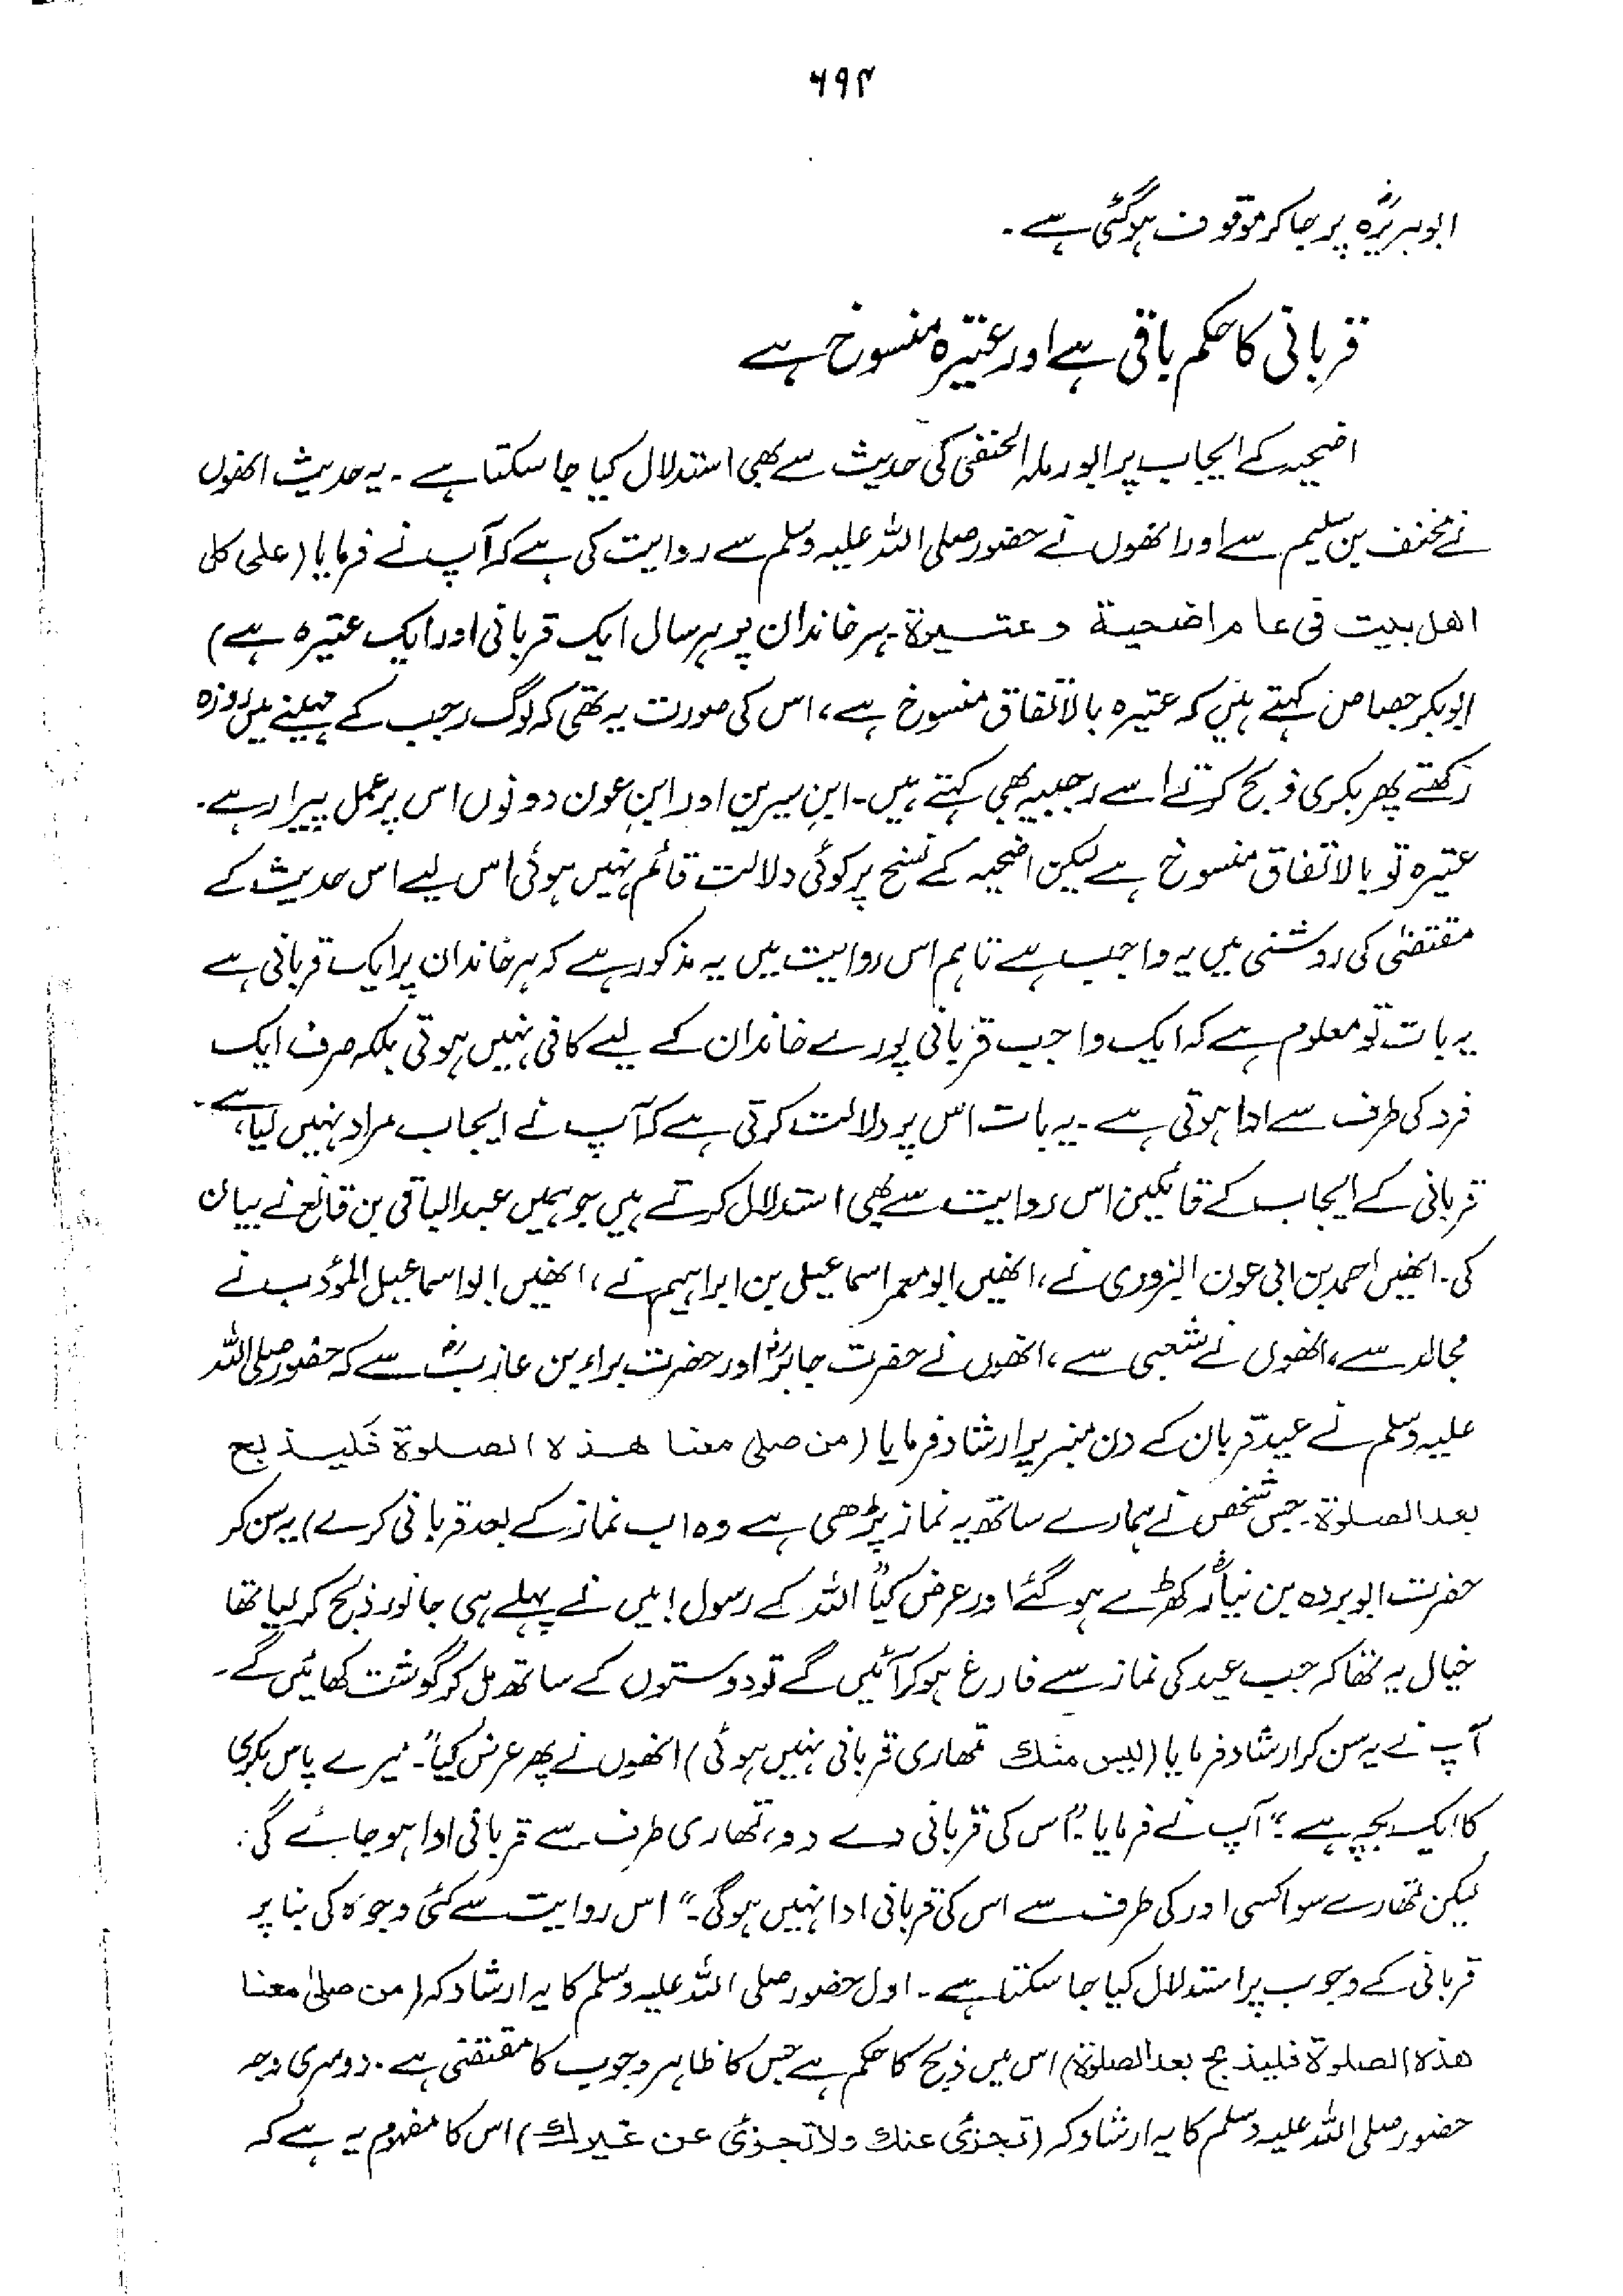 ۶۹۴
ابوہریرہؓ پر جا کر موقوف ہو گئی ہے۔
قربانی کا حکم باقی ہے اور عتیرہ منسوخ ہے
اضحیہ کے ایجاب پر ابورملہ الحنفی کی حدیث سے بھی استدلال کیا جا سکتا ہے۔ یہ حدیث انھوں
نے مخنف بن سلیم سے اور انھوں نے حضور صلی اللہ علیہ وسلم سے روایت کی ہے کہ آپ نے فرمایا (علی کل
اھل بیت فی عام اضحیة وعتیرة۔ ہر خاندان پر ہر سال ایک قربانی اور ایک عتیرہ ہے)
ابوبکر جصاص کہتے ہیں کہ عتیرہ بالاتفاق منسوخ ہے، اس کی صورت یہ تھی کہ لوگ رجب کے مہینے میں روزہ
رکھتے پھر بکری ذبح کرتے اسے رجبیہ بھی کہتے ہیں۔ ابن سیرین اور ابن عون دونوں اس پر عمل پیرا رہے۔
عتیرہ تو بالاتفاق منسوخ ہے لیکن اضحیہ کے نسخ پر کوئی دلالت قائم نہیں ہوئی اس لیے اس حدیث کے
مقتضیٰ کی روشنی میں یہ واجب ہے تاہم اس روایت میں یہ مذکور ہے کہ ہر خاندان پر ایک قربانی ہے
یہ بات تو معلوم ہے کہ ایک واجب قربانی پورے خاندان کے لیے کافی نہیں ہوتی بلکہ صرف ایک
فرد کی طرف سے ادا ہوتی ہے۔ یہ بات اس پر دلالت کرتی ہے کہ آپ نے ایجاب مراد نہیں لیا ہے۔
قربانی کے ایجاب کے قائلین اس روایت سے بھی استدلال کرتے ہیں جو ہمیں عبدالباقی بن قانع نے بیان
کی۔ انھیں احمد بن ابی عون البزوری نے، انھیں ابو معمر اسماعیل بن ابراہیم نے، انھیں ابو اسماعیل المؤدب نے
مجالد سے، انھوں نے شعبی سے، انھوں نے حضرت جابرؓ اور حضرت براء بن عازبؓ سے کہ حضور صلی اللہ
علیہ وسلم نے عید قربان کے دن منبر پر ارشاد فرمایا (من صلی معنا ھذہ الصلوة فلیذبح
بعد الصلوة۔ جس شخص نے ہمارے ساتھ یہ نماز پڑھی ہے وہ اب نماز کے بعد قربانی کرے) یہ سن کر
حضرت ابوبردہ بن نیارؓ کھڑے ہو گئے اور عرض کیا "اللہ کے رسول! میں نے پہلے ہی جانور ذبح کر لیا تھا
خیال یہ تھا کہ جب عید کی نماز سے فارغ ہو کر آئیں گے تو دوستوں کے ساتھ مل کر گوشت کھائیں گے۔
آپ نے یہ سن کر ارشاد فرمایا (لیس منک تمھاری قربانی نہیں ہوئی) انھوں نے پھر عرض کیا"۔ میرے پاس بکری
کا ایک بچہ ہے؛" آپ نے فرمایا: "اس کی قربانی دے دو، تمھاری طرف سے قربانی ادا ہو جائے گی:
لیکن تمھارے سوا کسی اور کی طرف سے اس کی قربانی ادا نہیں ہوگی۔" اس روایت سے کئی وجوہ کی بنا پر
قربانی کے وجوب پر استدلال کیا جا سکتا ہے۔ اول حضور صلی اللہ علیہ وسلم کا یہ ارشاد کہ (من صلیٰ معنا
ھذہ الصلوة فلیذبح بعد الصلوة) اس میں ذبح کا حکم ہے جس کا ظاہر وجوب کا مقتضی ہے۔ دوسری وجہ
حضور صلی اللہ علیہ وسلم کا یہ ارشاد کہ (تجزئ عنک ولا تجزئ عن غیرک) اس کا مفہوم یہ ہے کہ